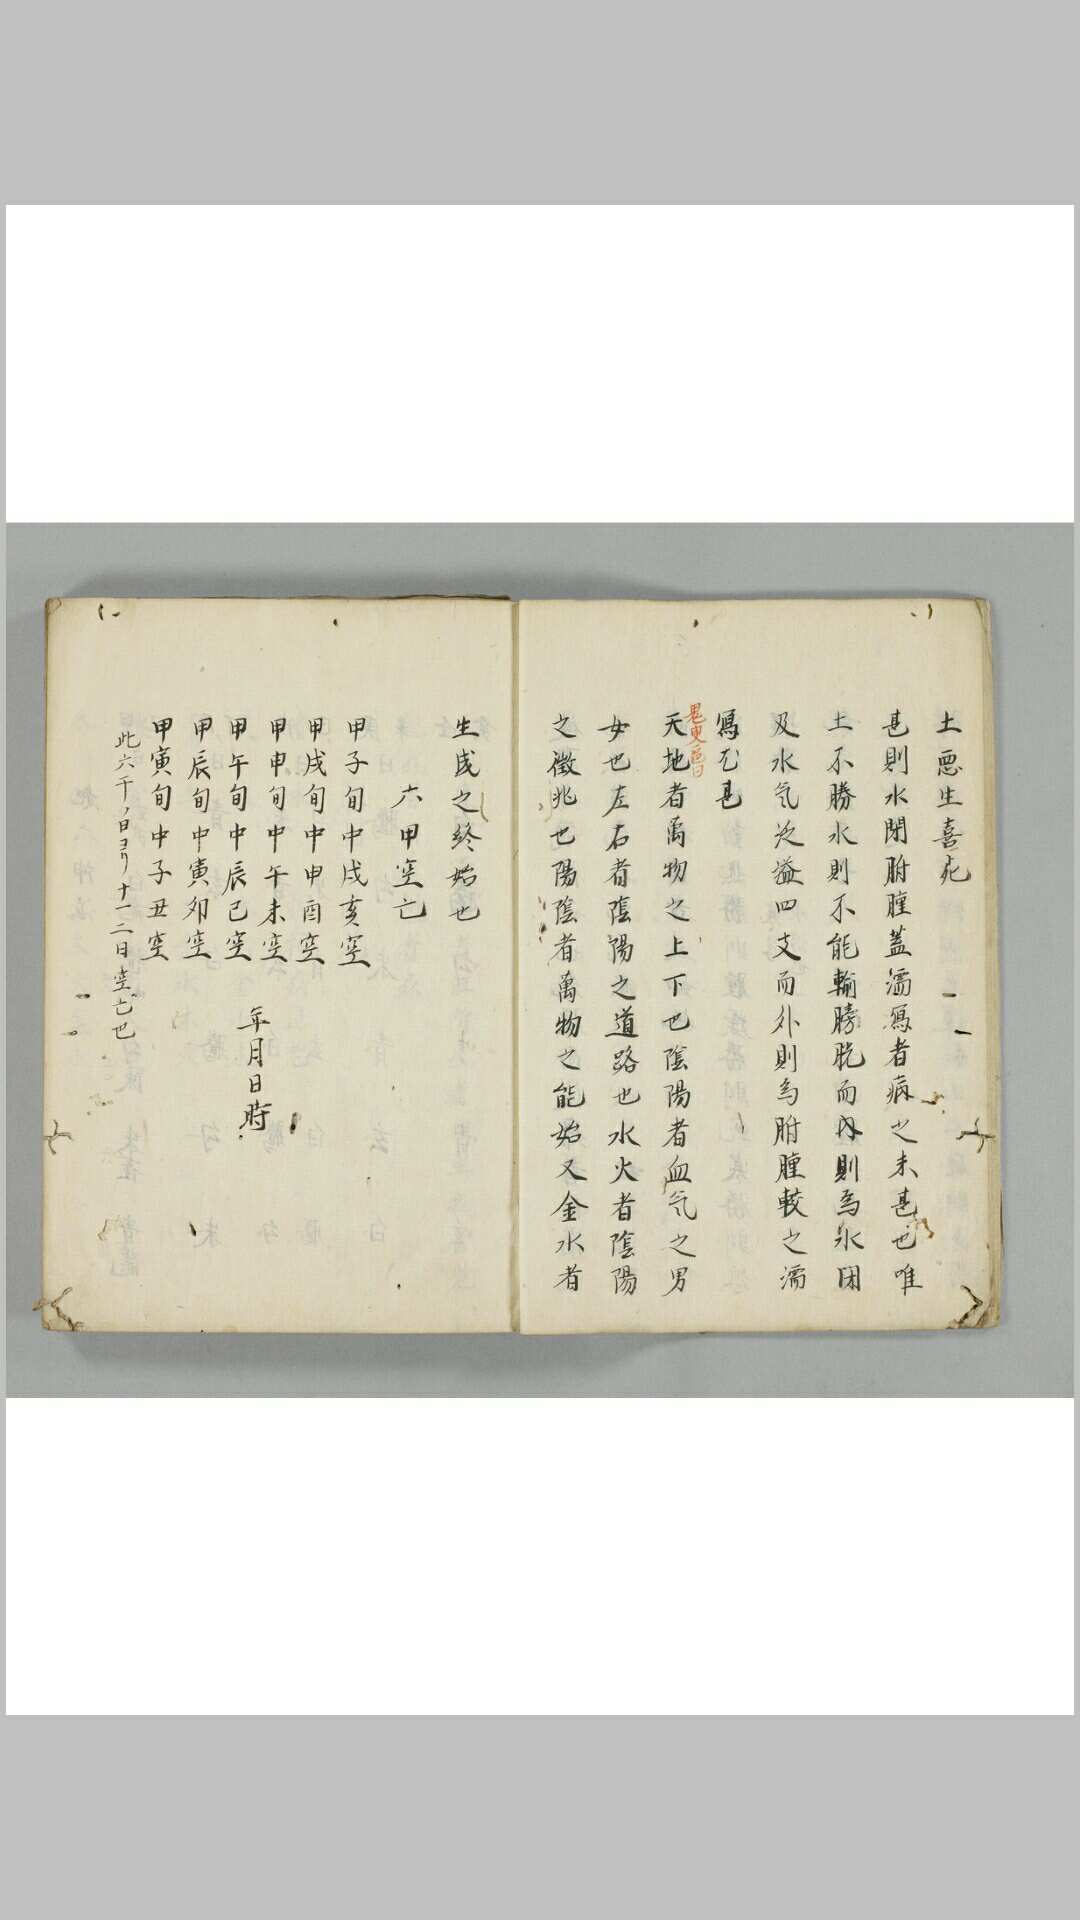 土惡生喜死
甚則水閉胕腫蓋濡寫者病之未甚也唯
土不勝水則不能輸膀胱而內則為水困
及水气泛溢四支而外則為胕腫較之濡
寫尤甚
鬼臾區曰
天地者萬物之上下也陰陽者血气之男
女也左右者陰陽之道路也水火者陰陽
之徵兆也陽陰者萬物之能始又金水者
生成之終始也
六甲空亡
甲子旬中戌亥空
甲戌旬中申酉空
甲申旬中午未空
甲午旬中辰巳空
甲辰旬中寅卯空
甲寅旬中子丑空
年月日時
此六干ノ日ヨリ十一二日空亡也